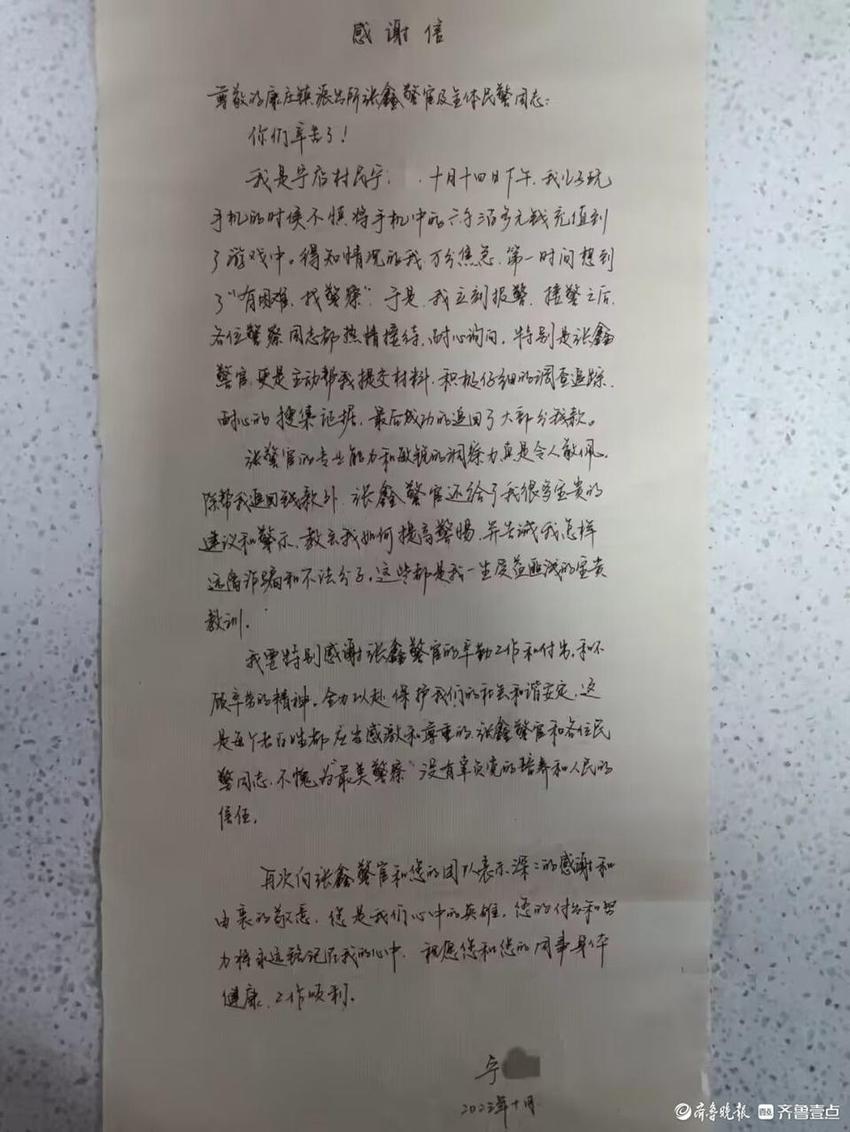 感谢信
尊敬的康庄镇派出所张鑫警官及全体民警同志：
你们辛苦了！
我是宁店村民宁 ，十月十四日下午，我儿子玩
手机的时候不慎将手机中的六千三百多元钱充值到
了游戏中。得知情况的我，万分焦急，第一时间想到
了“有困难、找警察”。于是，我立刻报警，接警之后，
各位警察同志都热情接待，耐心询问，特别是张鑫
警官，更是主动帮我提交材料，积极仔细的调查追踪，
耐心的搜集证据，最后成功的追回了大部分钱款。
张警官的专业能力和敏锐的洞察力真是令人敬佩。
除帮我追回钱款外，张鑫警官还给了我很多宝贵的
建议和警示，教会我如何提高警惕，并告诫我怎样
远离诈骗和不法分子。这些都是我一生受益匪浅的宝贵
教训。
我要特别感谢张鑫警官的辛勤工作和付出，和不
顾辛劳的精神，全力以赴保护我们的社会和谐安定，这
是每个老百姓都应当感激和尊重的，张鑫警官和各位民
警同志，不愧为“最美警察”没有辜负党的培养和人民的
信任。
再次向张鑫警官和您的团队表示深深的感谢和
由衷的敬意，您是我们心中的英雄，您的付出和努
力将永远铭记在我的心中，祝愿您和您的同事身体
健康、工作顺利。
宁
2023年十月
齐鲁晚报 齐鲁壹点